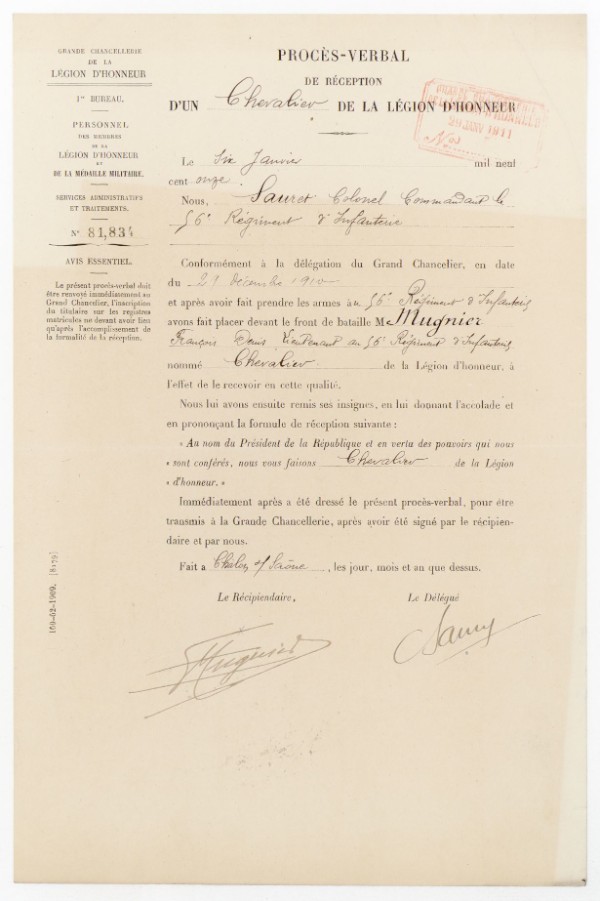 GRANDE CHANCELLERIE
DE LA
LÉGION D'HONNEUR
1er BUREAU.
PERSONNEL
DES MEMBRES
DE LA
LÉGION D'HONNEUR
ET
DE LA MÉDAILLE MILITAIRE.
SERVICES ADMINISTRATIFS
ET TRAITEMENTS.
N° 81,834
AVIS ESSENTIEL.
Le présent procès-verbal doit
être renvoyé immédiatement au
Grand Chancelier, l'inscription
du titulaire sur les registres
matricules ne devant avoir lieu
qu'après l'accomplissement de
la formalité de la réception.
PROCÈS-VERBAL
DE RÉCEPTION
D'UN Chevalier DE LA LÉGION D'HONNEUR
JANV 1911
Le Six Janvier mil neuf
cent onze
Nous, Sauret Colonel Commandant le
56e Régiment d'Infanterie
Conformément à la délégation du Grand Chancelier, en date
du 29 décembre 1910
et après avoir fait prendre les armes au 56e Régiment d'Infanterie
avons fait placer devant le front de bataille M Mugnier
François Denis, Lieutenant au 56e Régiment d'Infanterie
nommé Chevalier de la Légion d'honneur, à
l'effet de le recevoir en cette qualité.
Nous lui avons ensuite remis ses insignes, en lui donnant l'accolade et
en prononçant la formule de réception suivante :
« Au nom du Président de la République et en vertu des pouvoirs qui nous
« sont conférés, nous vous faisons Chevalier de la Légion
« d'honneur. »
Immédiatement après a été dressé le présent procès-verbal, pour être
transmis à la Grande Chancellerie, après avoir été signé par le récipien-
daire et par nous.
Fait à Chalon s/ Saône, les jour, mois et an que dessus.
Le Récipiendaire, Le Délégué
Mugnier